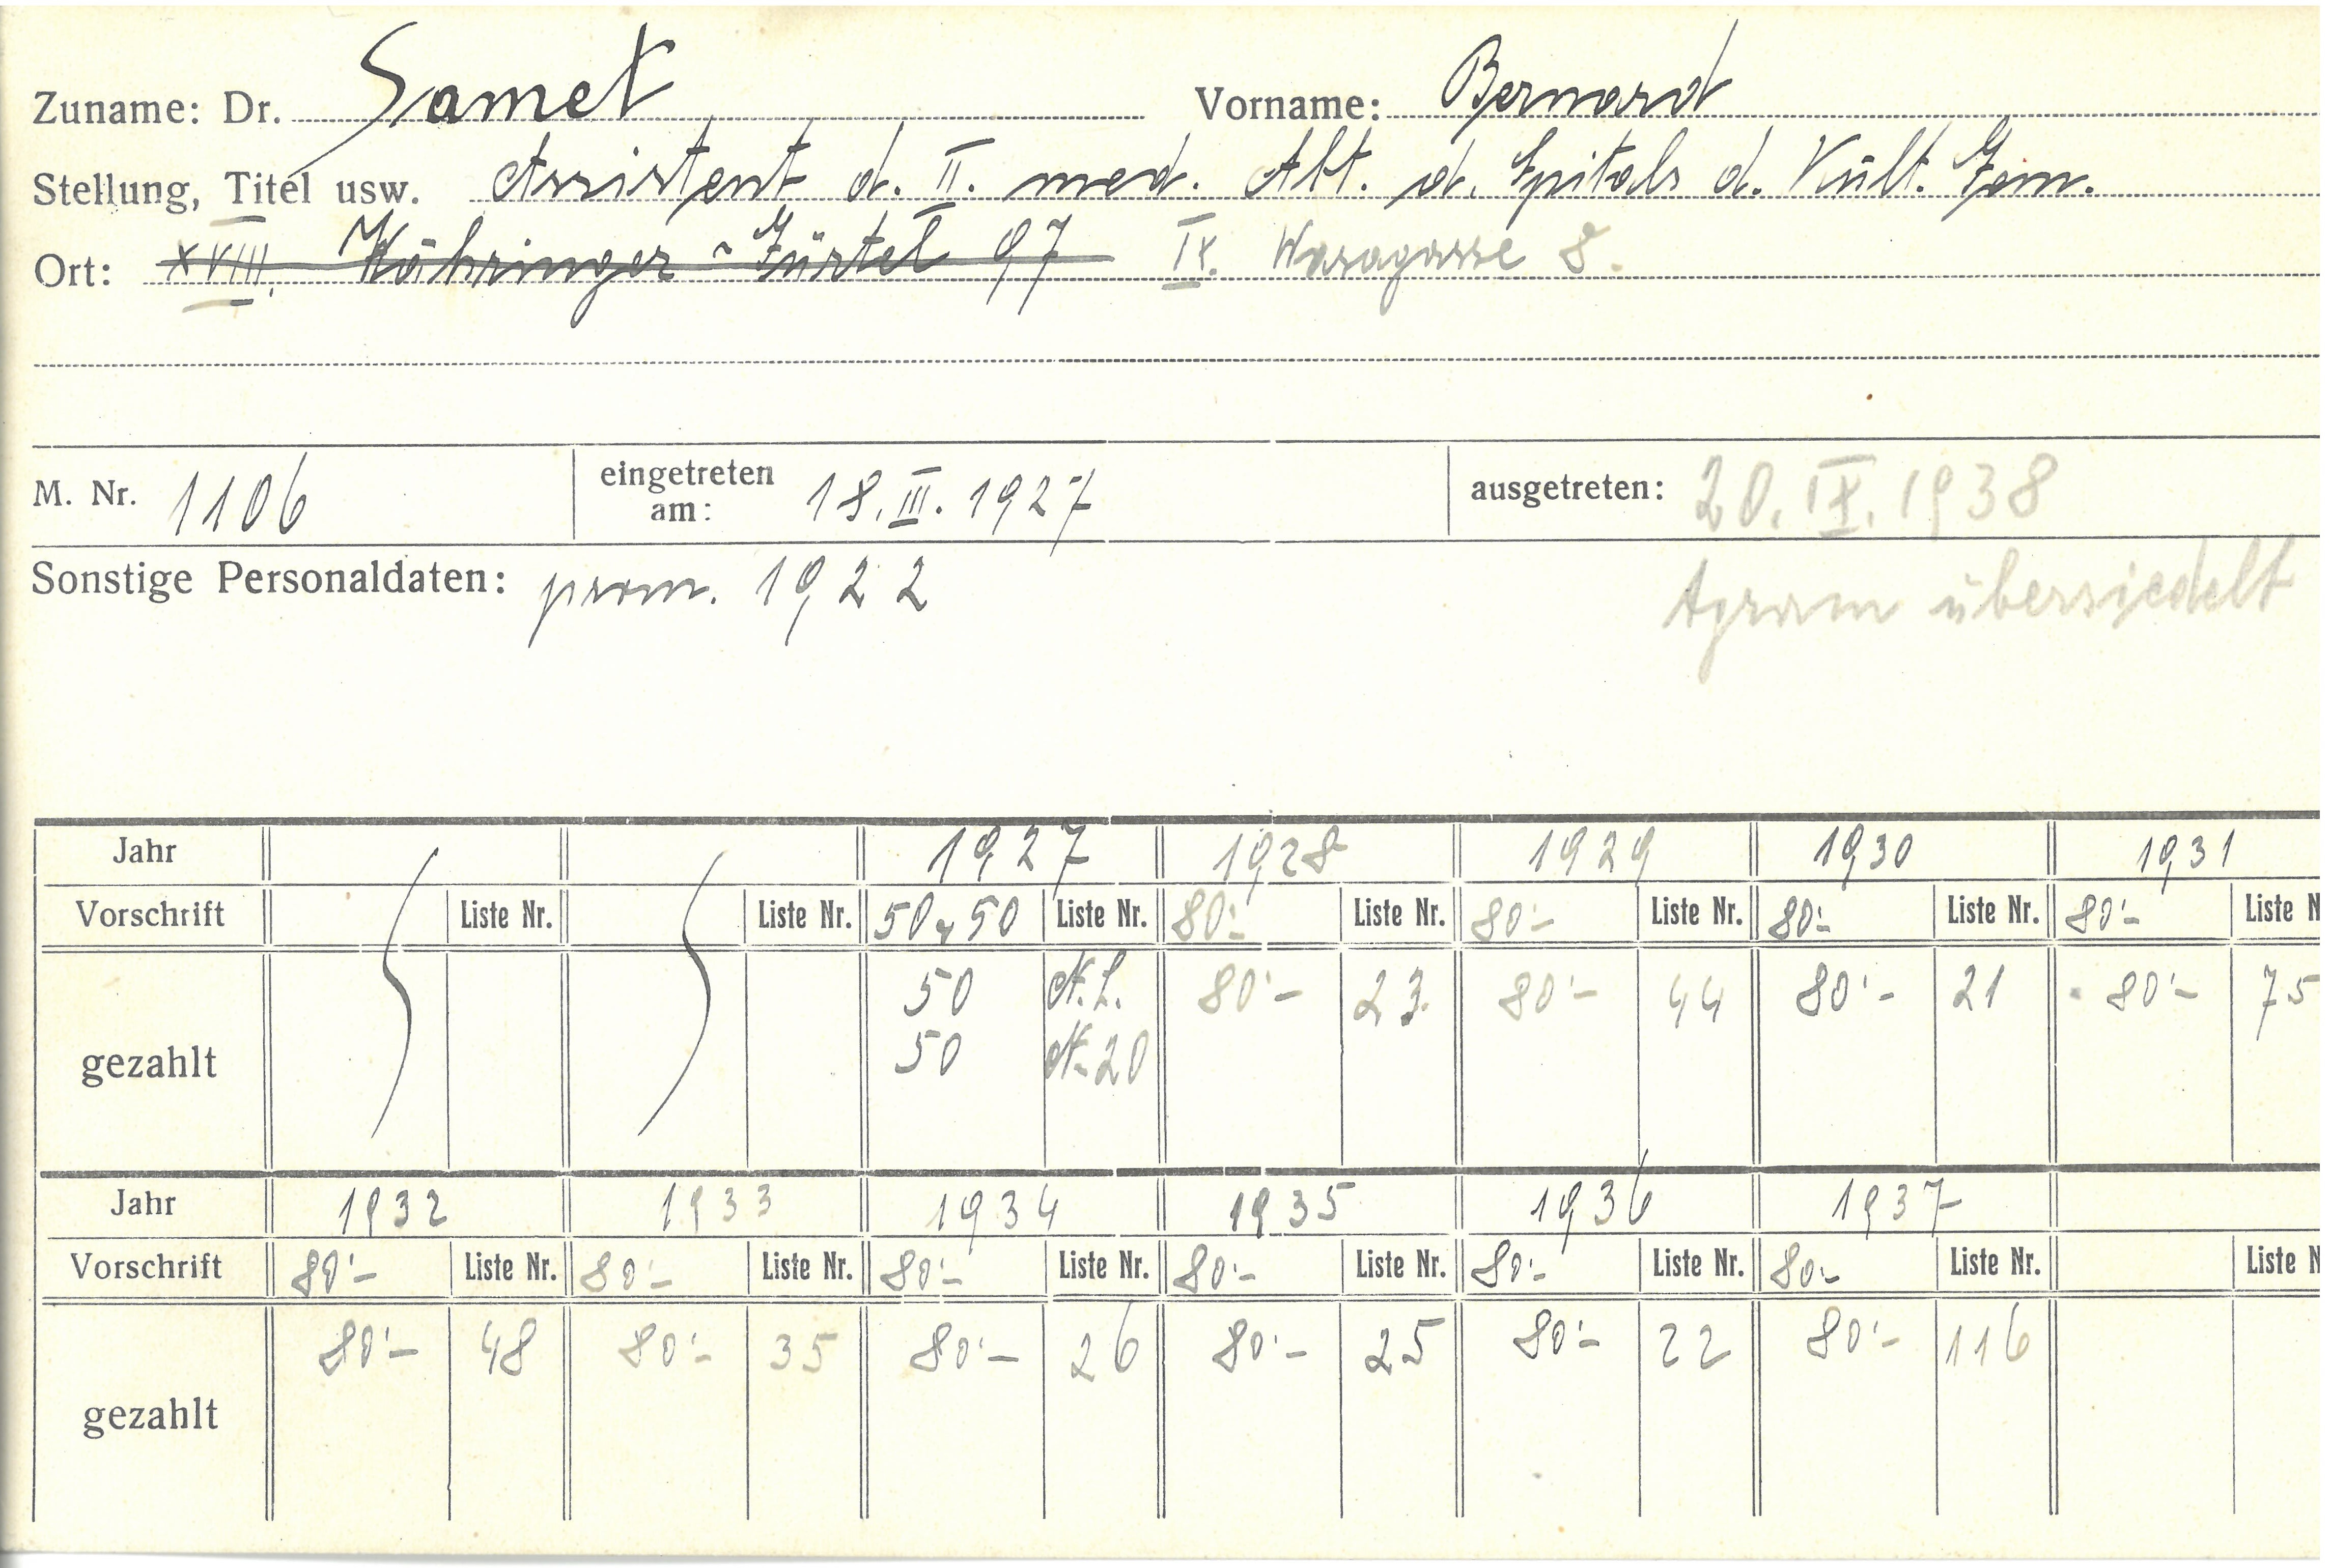 Zuname: Dr. Samet Vorname: Bernard
Stellung, Titel usw. Assistent d. II. med. Abt. d. Spitals d. Kult. Gem.
Ort: XVIII. Währinger-Gürtel 97 IX. Wasagasse 8.
M. Nr. 1106 eingetreten am: 18.III.1927 ausgetreten: 20.IX.1938
Sonstige Personaldaten: prom. 1922 Agram übersiedelt
Jahr 1927 1928 1929 1930 1931
Vorschrift Liste Nr. Liste Nr. 50 50 Liste Nr. 80'- Liste Nr. 80'- Liste Nr. 80'- Liste Nr. 80'- Liste N
50 N.L. 80'- 23. 80'- 44 80'- 21 80'- 75
gezahlt 50 N.20
Jahr 1932 1933 1934 1935 1936 1937
Vorschrift 80'- Liste Nr. 80'- Liste Nr. 80'- Liste Nr. 80'- Liste Nr. 80'- Liste Nr. 80'- Liste Nr. Liste N
80'- 48 80'- 35 80'- 26 80'- 25 80'- 22 80'- 116
gezahlt